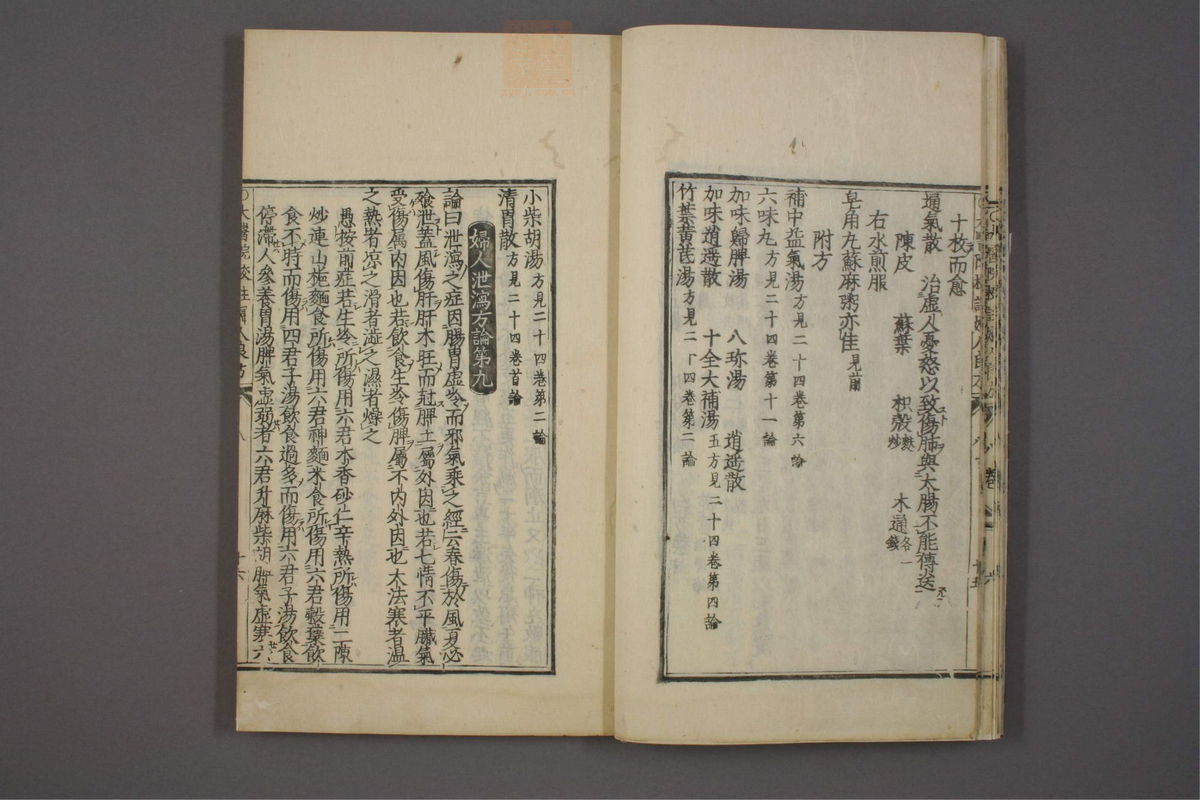 十枚而愈
通氣散　治虛人憂愁以致傷肺與大腸不能傳送
陳皮　蘇葉　枳殼麩炒　木通各一錢
右水煎服
皂角丸蘇麻粥亦佳見前
附方
補中益氣湯方見二十四卷第六論
六味丸方見二十四卷第十一論
加味歸脾湯　八珎湯　逍遥散
加味逍遥散　十全大補湯五方見二十四卷第四論
竹葉黄芪湯方見二十四卷第二論
小柴胡湯方見二十四卷第二論
清胃散方見二十四卷首論
婦人泄瀉方論第九
論曰泄瀉之症因腸胃虛冷而邪氣乘之經云春傷於風夏必
飱泄蓋風傷肝肝木旺而尅脾土屬外因也若七情不平臟氣
受傷属内因也若飲食生冷傷脾屬不内外因也大法寒者温
之熱者凉之滑者澁之濕者燥之
愚按前症若生冷所傷用六君木香砂仁辛熱所傷用二陳
炒連山梔麵食所傷用六君神麯米食所傷用六君穀蘖飲
食不時而傷用四君子湯飲食過多而傷用六君子湯飲食
停滯人參養胃湯脾氣虚弱者六君升麻柴胡脾氣虛寒六
太醫院校註婦人良方
八
十六